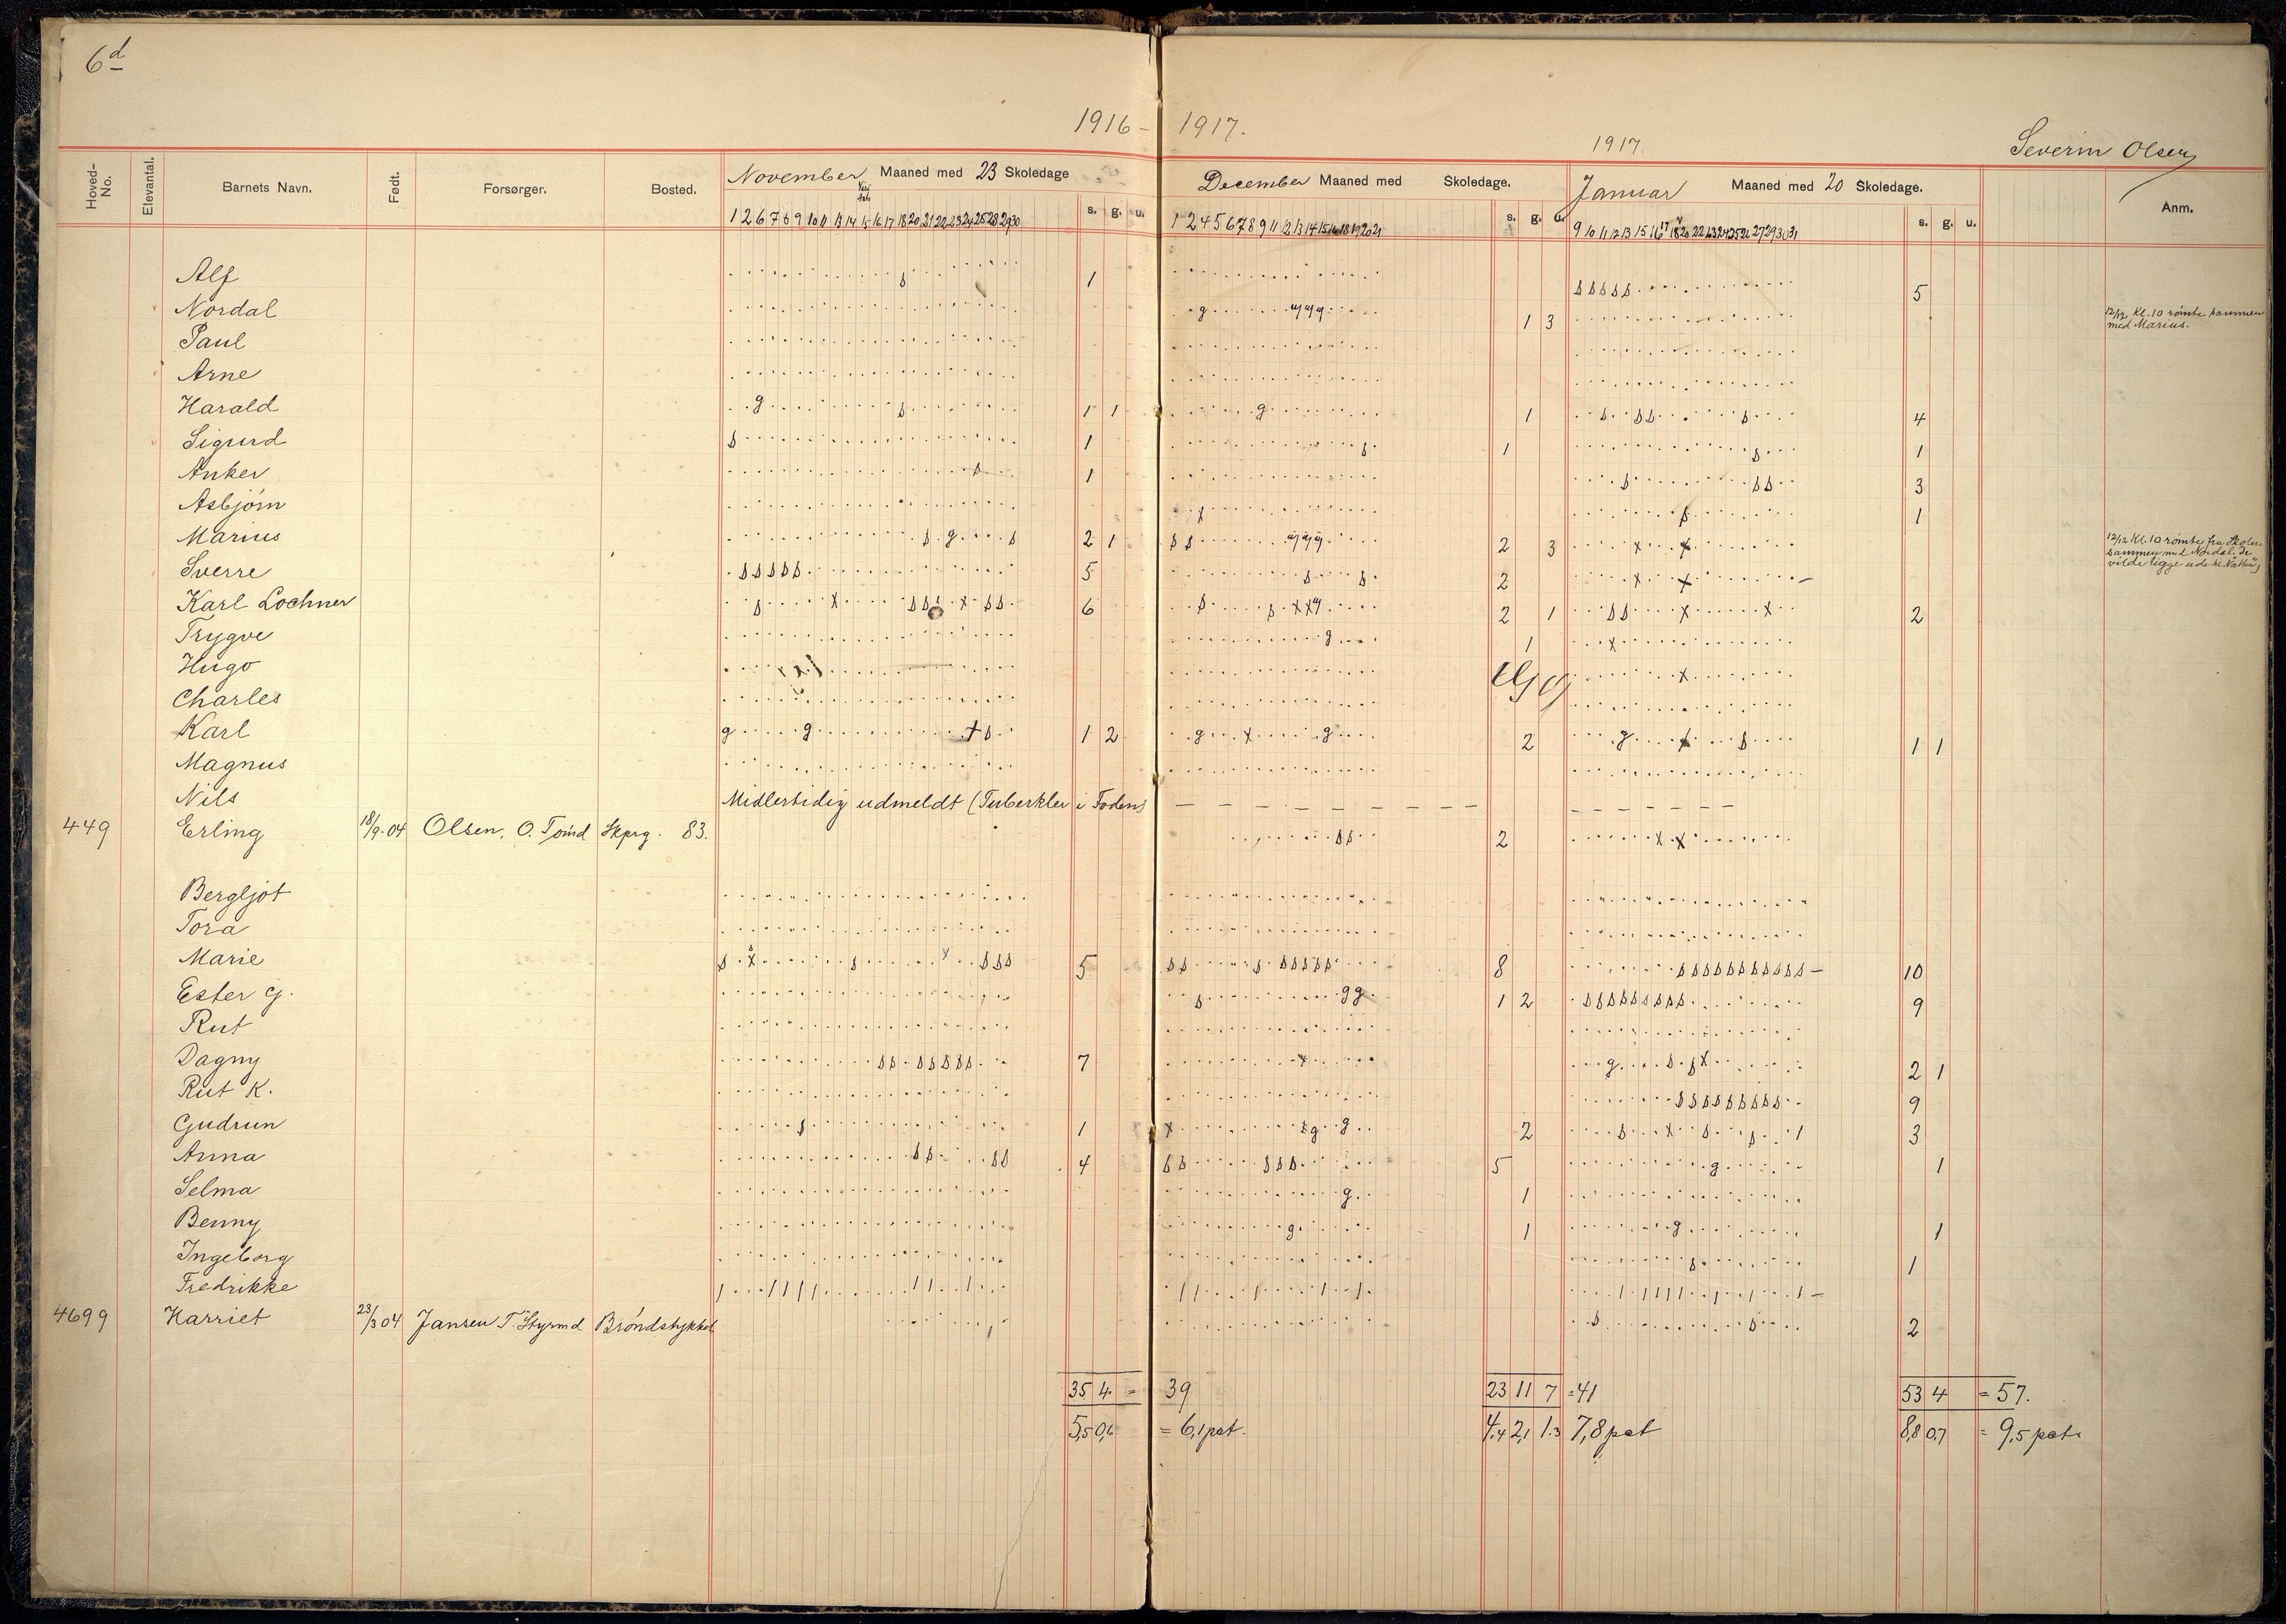 6d
1916 – 1917.
1917.
Severin Olsen
Hoved-No. Elevantal. Barnets Navn. Født. Forsørger. Bosted. November Maaned med 23 Skoledage s. g. u. December Maaned med Skoledage. s. g. u. Januar Maaned med 20 Skoledage. s. g. u. Anm.
1 2 6 7 8 9 10 11 13 14 15 16 17 18 20 21 22 23 24 25 28 29 30 1 2 4 5 6 7 8 9 11 12 13 14 15 16 18 19 20 21 9 10 11 12 13 15 16 17 18 20 22 23 24 25 26 27 29 30 31
Alf s 1 s s s s s 5
Nordal g u u u 1 3 12/12 Kl. 10 rømte sammen
med Marius.
Paul
Arne
Harald g s 1 1 g 1 s s s s 4
Sigurd s 1 s 1 s 1
Anker s 1 s s s 3
Asbjørn x s 1
Marius s g s 2 1 s s u u u 2 3 x x 12/12 Kl. 10 rømte fra Skolen
sammen med Nordal. De
vilde ligge ude
Sverre s s s s s 5 s s 2 x x
Karl Lochner s x s s s x s s 6 s s x x u 2 1 s s x x 2
Trygve g 1 x
Hugo x
Charles
Karl g g + s 1 2 g x g 2 g x s 1 1
Magnus
Nils Midlertidig udmeldt (Tuberkler i Foden)
449 Erling 18/9-04 Olsen, O. Tømd Skprg. 83. s s 2 x x
Bergljot
Tora
Marie s x s x s s s 5 s s s s s s s s 8 s s s s s s s s s s s 10
Ester G. s g g 1 2 s s s s s s s s s 9
Rut
Dagny s s s s s s s 7 x g s s x 2 1
Rut K. s s s s s s s s s 9
Gudrun s 1 x g g 2 s x s s 1 3
Anna s s s s 4 s s s s s 5 g 1
Selma g 1
Benny g 1 g 1
Ingeborg s 1
Fredrikke
4699 Harriet 23/3 04 Jansen T. Styrmd Brøndstykket s s 2
35 4 = 39 23 11 7 = 41 53 4 = 57.
5,5 0,6 = 6,1 pct. 4.4 2,1 1.3 7,8 pct 8,8 0,7 = 9,5 pct.